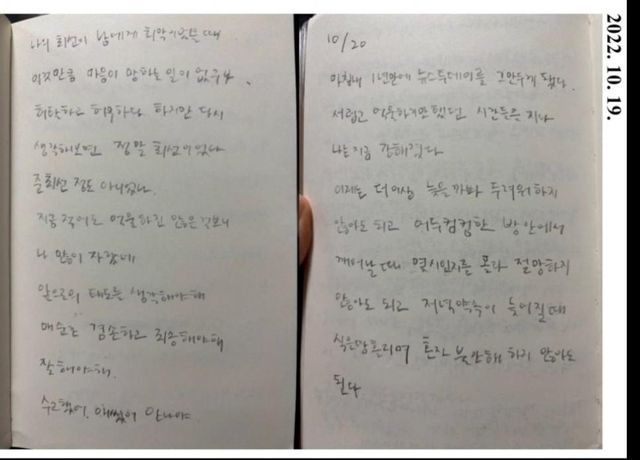 나의 최선이 남에게 최악이었을 때
이것만큼 마음이 망하는 일이 없구나.
허탈하고 허무하다. 하지만 다시
생각해보면 정말 최선이었나
준최선 정도 아니었나.
지금 적어도 억울하진 않은 것 보니
나 많이 자랐네
앞으로의 태도를 생각해야 해
매순간 겸손하고 최승해야 해
잘해야 해.
수고했어. 애썼어 안나야.
10/20
마침내 1년만에 뉴스투데이를 그만두게 됐다.
서럽고 억울하기만 했던 시간들을 지나
나는 지금 강해졌다
이제는 더이상 늦을까봐 두려워하지
않아도 되고 어두컴컴한 방 안에서
깨어날 때 몇시인지를 몰라 절망하지
않아도 되고 저녁약속이 늦어질 때
식은땀 흘리며 혼자 불안해 하지 않아도
된다
2022. 10. 19.